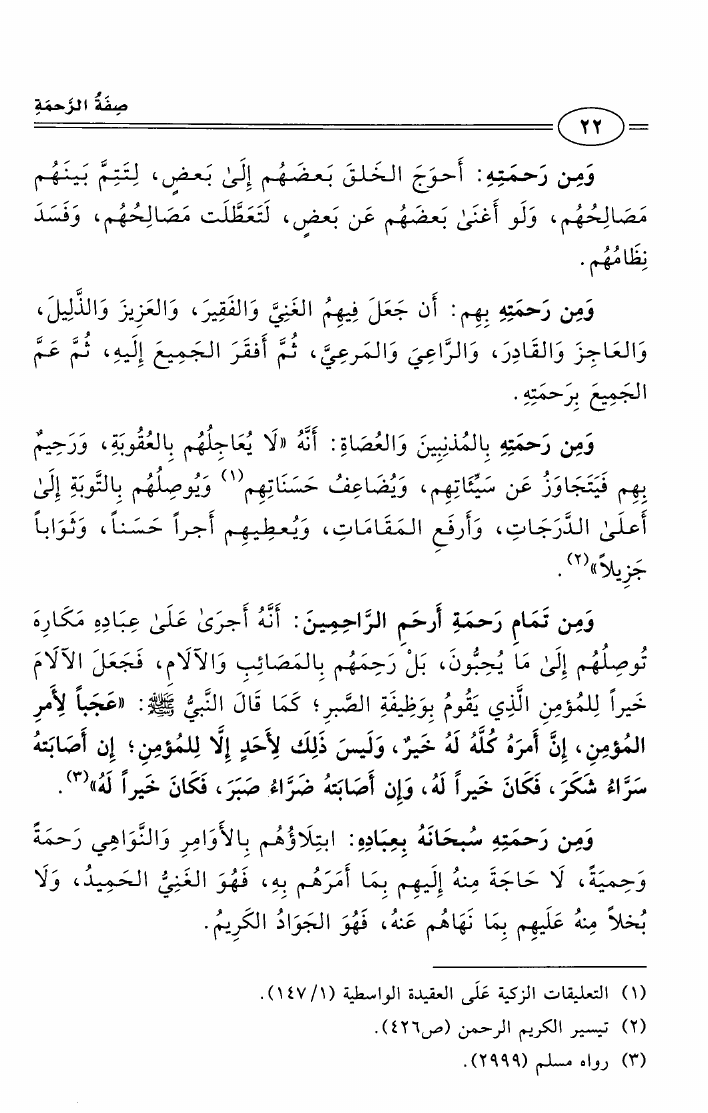 صِفَةُ الرَّحمَةِ
٢٢
وَمِن رَحمَتِهِ: أَحوَجَ الخَلقَ بَعضَهُم إِلَىٰ بَعضٍ، لِتَتِمَّ بَينَهُم
مَصَالِحُهُم، وَلَو أَغنَىٰ بَعضَهُم عَن بَعضٍ، لَتَعَطَّلَت مَصَالِحُهُم، وَفَسَدَ
نِظَامُهُم.
وَمِن رَحمَتِهِ بِهِم: أَن جَعَلَ فِيهِمُ الغَنِيَّ وَالفَقِيرَ، وَالعَزِيزَ وَالذَّلِيلَ،
وَالعَاجِزَ وَالقَادِرَ، وَالرَّاعِيَ وَالمَرعِيَّ، ثُمَّ أَفقَرَ الجَمِيعَ إِلَيهِ، ثُمَّ عَمَّ
الجَمِيعَ بِرَحمَتِهِ.
وَمِن رَحمَتِهِ بِالمُذنِبِينَ وَالعُصَاةِ: أَنَّهُ «لَا يُعَاجِلُهُم بِالعُقُوبَةِ، وَرَحِيمٌ
بِهِم فَيَتَجَاوَزُ عَن سَيِّئَاتِهِم، وَيُضَاعِفُ حَسَنَاتِهِم(١) وَيُوصِلُهُم بِالتَّوبَةِ إِلَىٰ
أَعلَىٰ الدَّرَجَاتِ، وَأَرفَعِ المَقَامَاتِ، وَيُعطِيهِم أَجراً حَسَناً، وَثَوَاباً
جَزِيلاً»(٢).
وَمِن تَمَامِ رَحمَةِ أَرحَمِ الرَّاحِمِينَ: أَنَّهُ أَجرَىٰ عَلَىٰ عِبَادِهِ مَكَارِهَ
تُوصِلُهُم إِلَىٰ مَا يُحِبُّونَ، بَلْ رَحِمَهُم بِالمَصَائِبِ وَالآلَامِ، فَجَعَلَ الآلَامَ
خَيراً لِلمُؤمِنِ الَّذِي يَقُومُ بِوَظِيفَةِ الصَّبرِ؛ كَمَا قَالَ النَّبِيُّ ﷺ: «عَجَباً لِأَمرِ
المُؤمِنِ، إِنَّ أَمرَهُ كُلَّهُ لَهُ خَيرٌ، وَلَيسَ ذَلِكَ لِأَحَدٍ إِلَّا لِلمُؤمِنِ؛ إِن أَصَابَتهُ
سَرَّاءُ شَكَرَ، فَكَانَ خَيراً لَهُ، وَإِن أَصَابَتهُ ضَرَّاءُ صَبَرَ، فَكَانَ خَيراً لَهُ»(٣).
وَمِن رَحمَتِهِ سُبحَانَهُ بِعِبَادِهِ: ابتِلَاؤُهُم بِالأَوَامِرِ وَالنَّوَاهِي رَحمَةً
وَحِميَةً، لَا حَاجَةَ مِنهُ إِلَيهِم بِمَا أَمَرَهُم بِهِ، فَهُوَ الغَنِيُّ الحَمِيدُ، وَلَا
بُخلاً مِنهُ عَلَيهِم بِمَا نَهَاهُم عَنهُ، فَهُوَ الجَوَادُ الكَرِيمُ.
(١) التعليقات الزكية عَلَى العقيدة الواسطية (١٤٧/١).
(٢) تيسير الكريم الرحمن (ص٤٢٦).
(٣) رواه مسلم (٢٩٩٩).